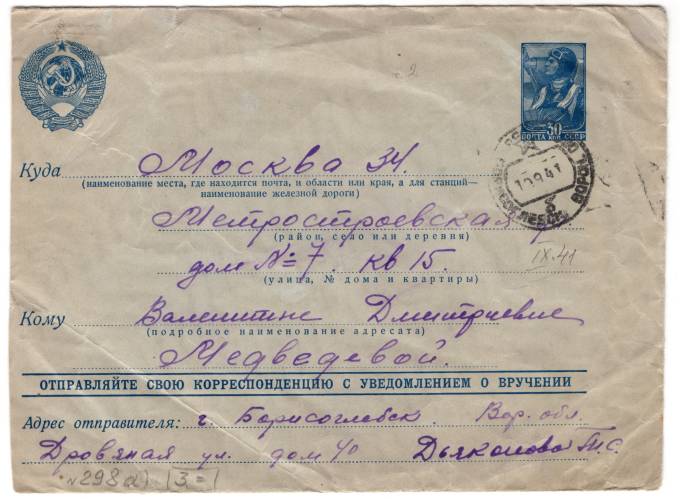 с. 2.
30
ПОЧТА КОП. СССР
Куда Москва 34.
(наименование места, где находится почта, и области или края, а для станций—
наименование железной дороги)
Метростроевская
(район, село или деревня)
дом № 7. кв 15.
(улица, № дома и квартиры)
10.9.41
IX.41
Кому Валентине Дмитриевне
(подробное наименование адресата)
Медведевой.
ОТПРАВЛЯЙТЕ СВОЮ КОРРЕСПОНДЕНЦИЮ С УВЕДОМЛЕНИЕМ О ВРУЧЕНИИ
Адрес отправителя: г. Борисоглебск. Вор. обл.
Дровяная ул. дом 40 Дьяконова Т.С.
№298а) 3=